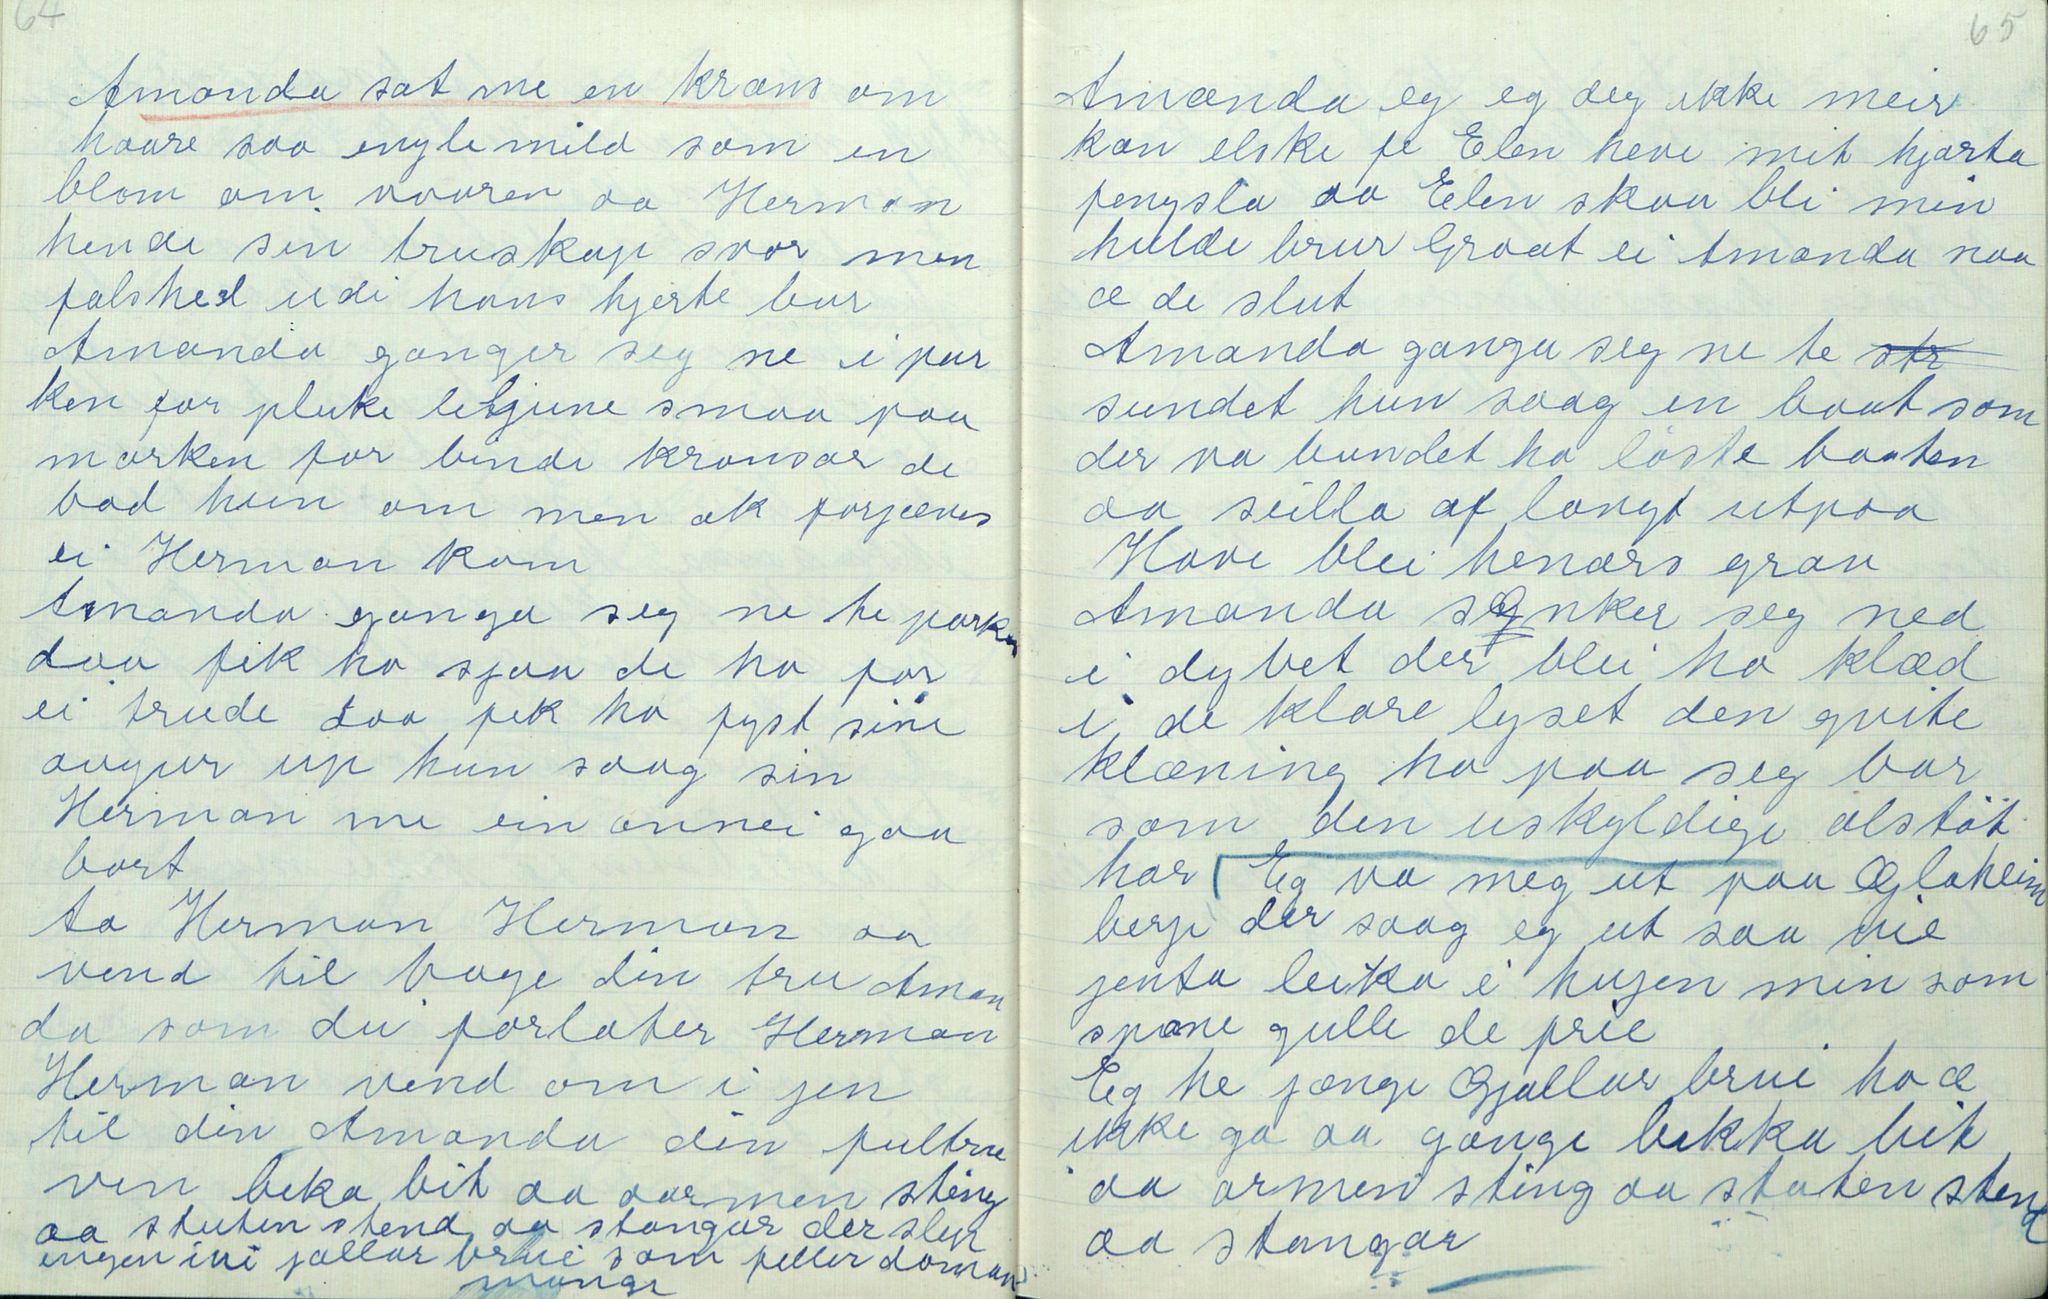 64
Amanda sat me en krans om
haare saa englemild som en
blom om vaaren aa Herman
hende sin truskap svor men
falshed udi hans hjerte bar
Amanda ganger seg ne i par
ken for pluke smaa paa
marken for binde kransar de
bad hun om men ak forjæves
ei Herman kom
Amanda ganga seg ne te parken
daa fik ho sjaa de ho før
ei trude daa fek ho fyst sine
augur up hun saag sin
Herman me ein annei gaa
bort
ta Herman Herman aa
vend til bage din tru Aman
da som du forlater Herman
Herman vend om i jen
til din Amanda din fultrue
ven beka bit aa aarmen sting
aa stuten stend aa stangar der slep
ingen ivi jallar brui som feller doman
mange
65
Amanda eg eg deg ikke meir
kan elske fe Elen heve mit hjarta
fengsla aa Elen skaa bli min
hulde brur Graat ei Amanda naa
æ de slut
Amanda ganga seg ne te str
sundet hun saag en baat som
der va bundet ho løste baaten
aa seilla af langt utpaa
Have blei henars grav
Amanda sønker seg ned
i dybet der blei ho klæd
i de klare lyset den qvite
klæning ho paa seg bar
som den uskyldige alstöt
har Eg va meg ut paa Glaheim
berge der saag eg ut saa vie
jenta leika i hugen min som
spøne gulle de prie
Eg he jænge Gjallar brui ho æ
ikke go aa gange bikka bit
aa ormen sting aa stuten stend
aa stangar